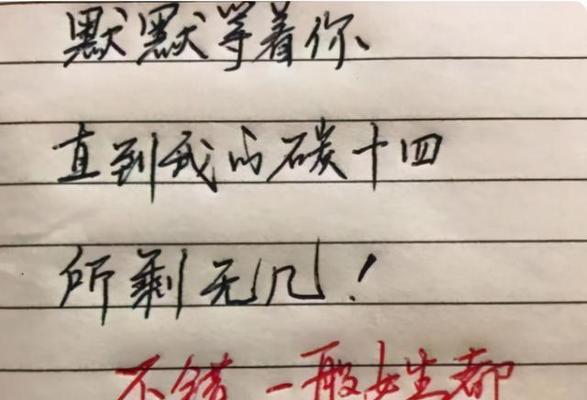 默默等着你
直到我的碳十四
所剩无几！
不错 一般女生都